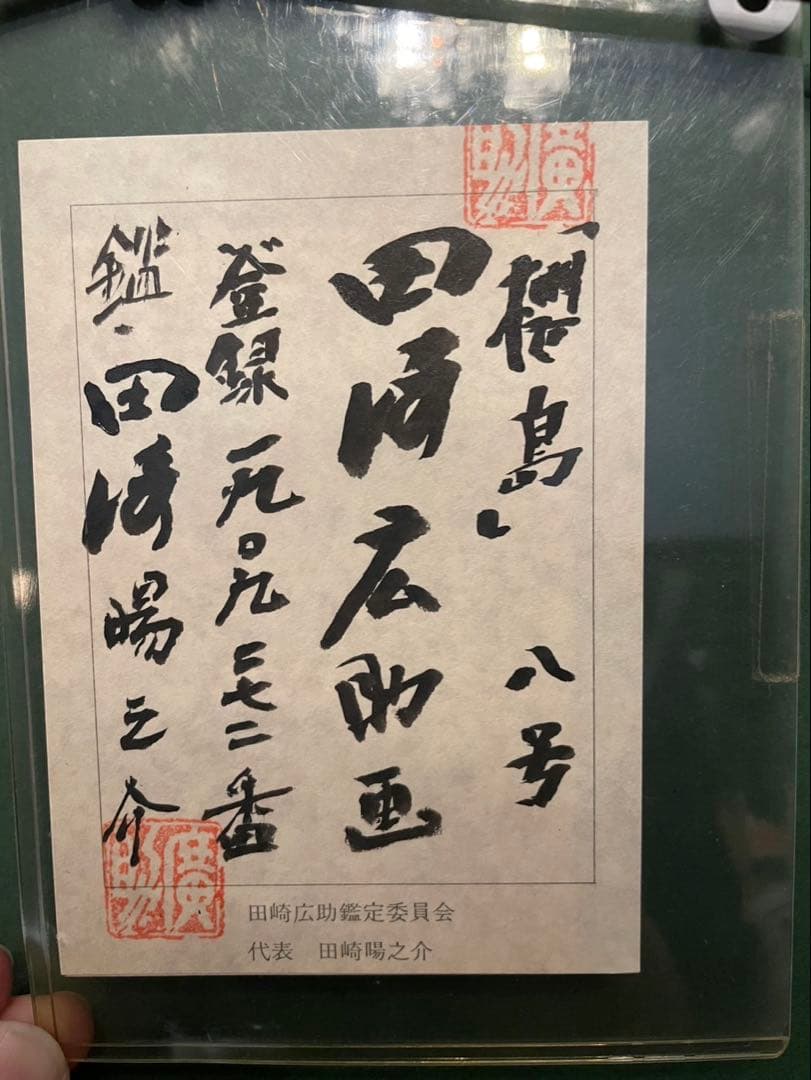 廣助
「櫻島」 八号
田崎広助画
登録 一九〇九二七二番
鑑・田崎暘之介
廣助
田崎広助鑑定委員会
代表 田崎暘之介